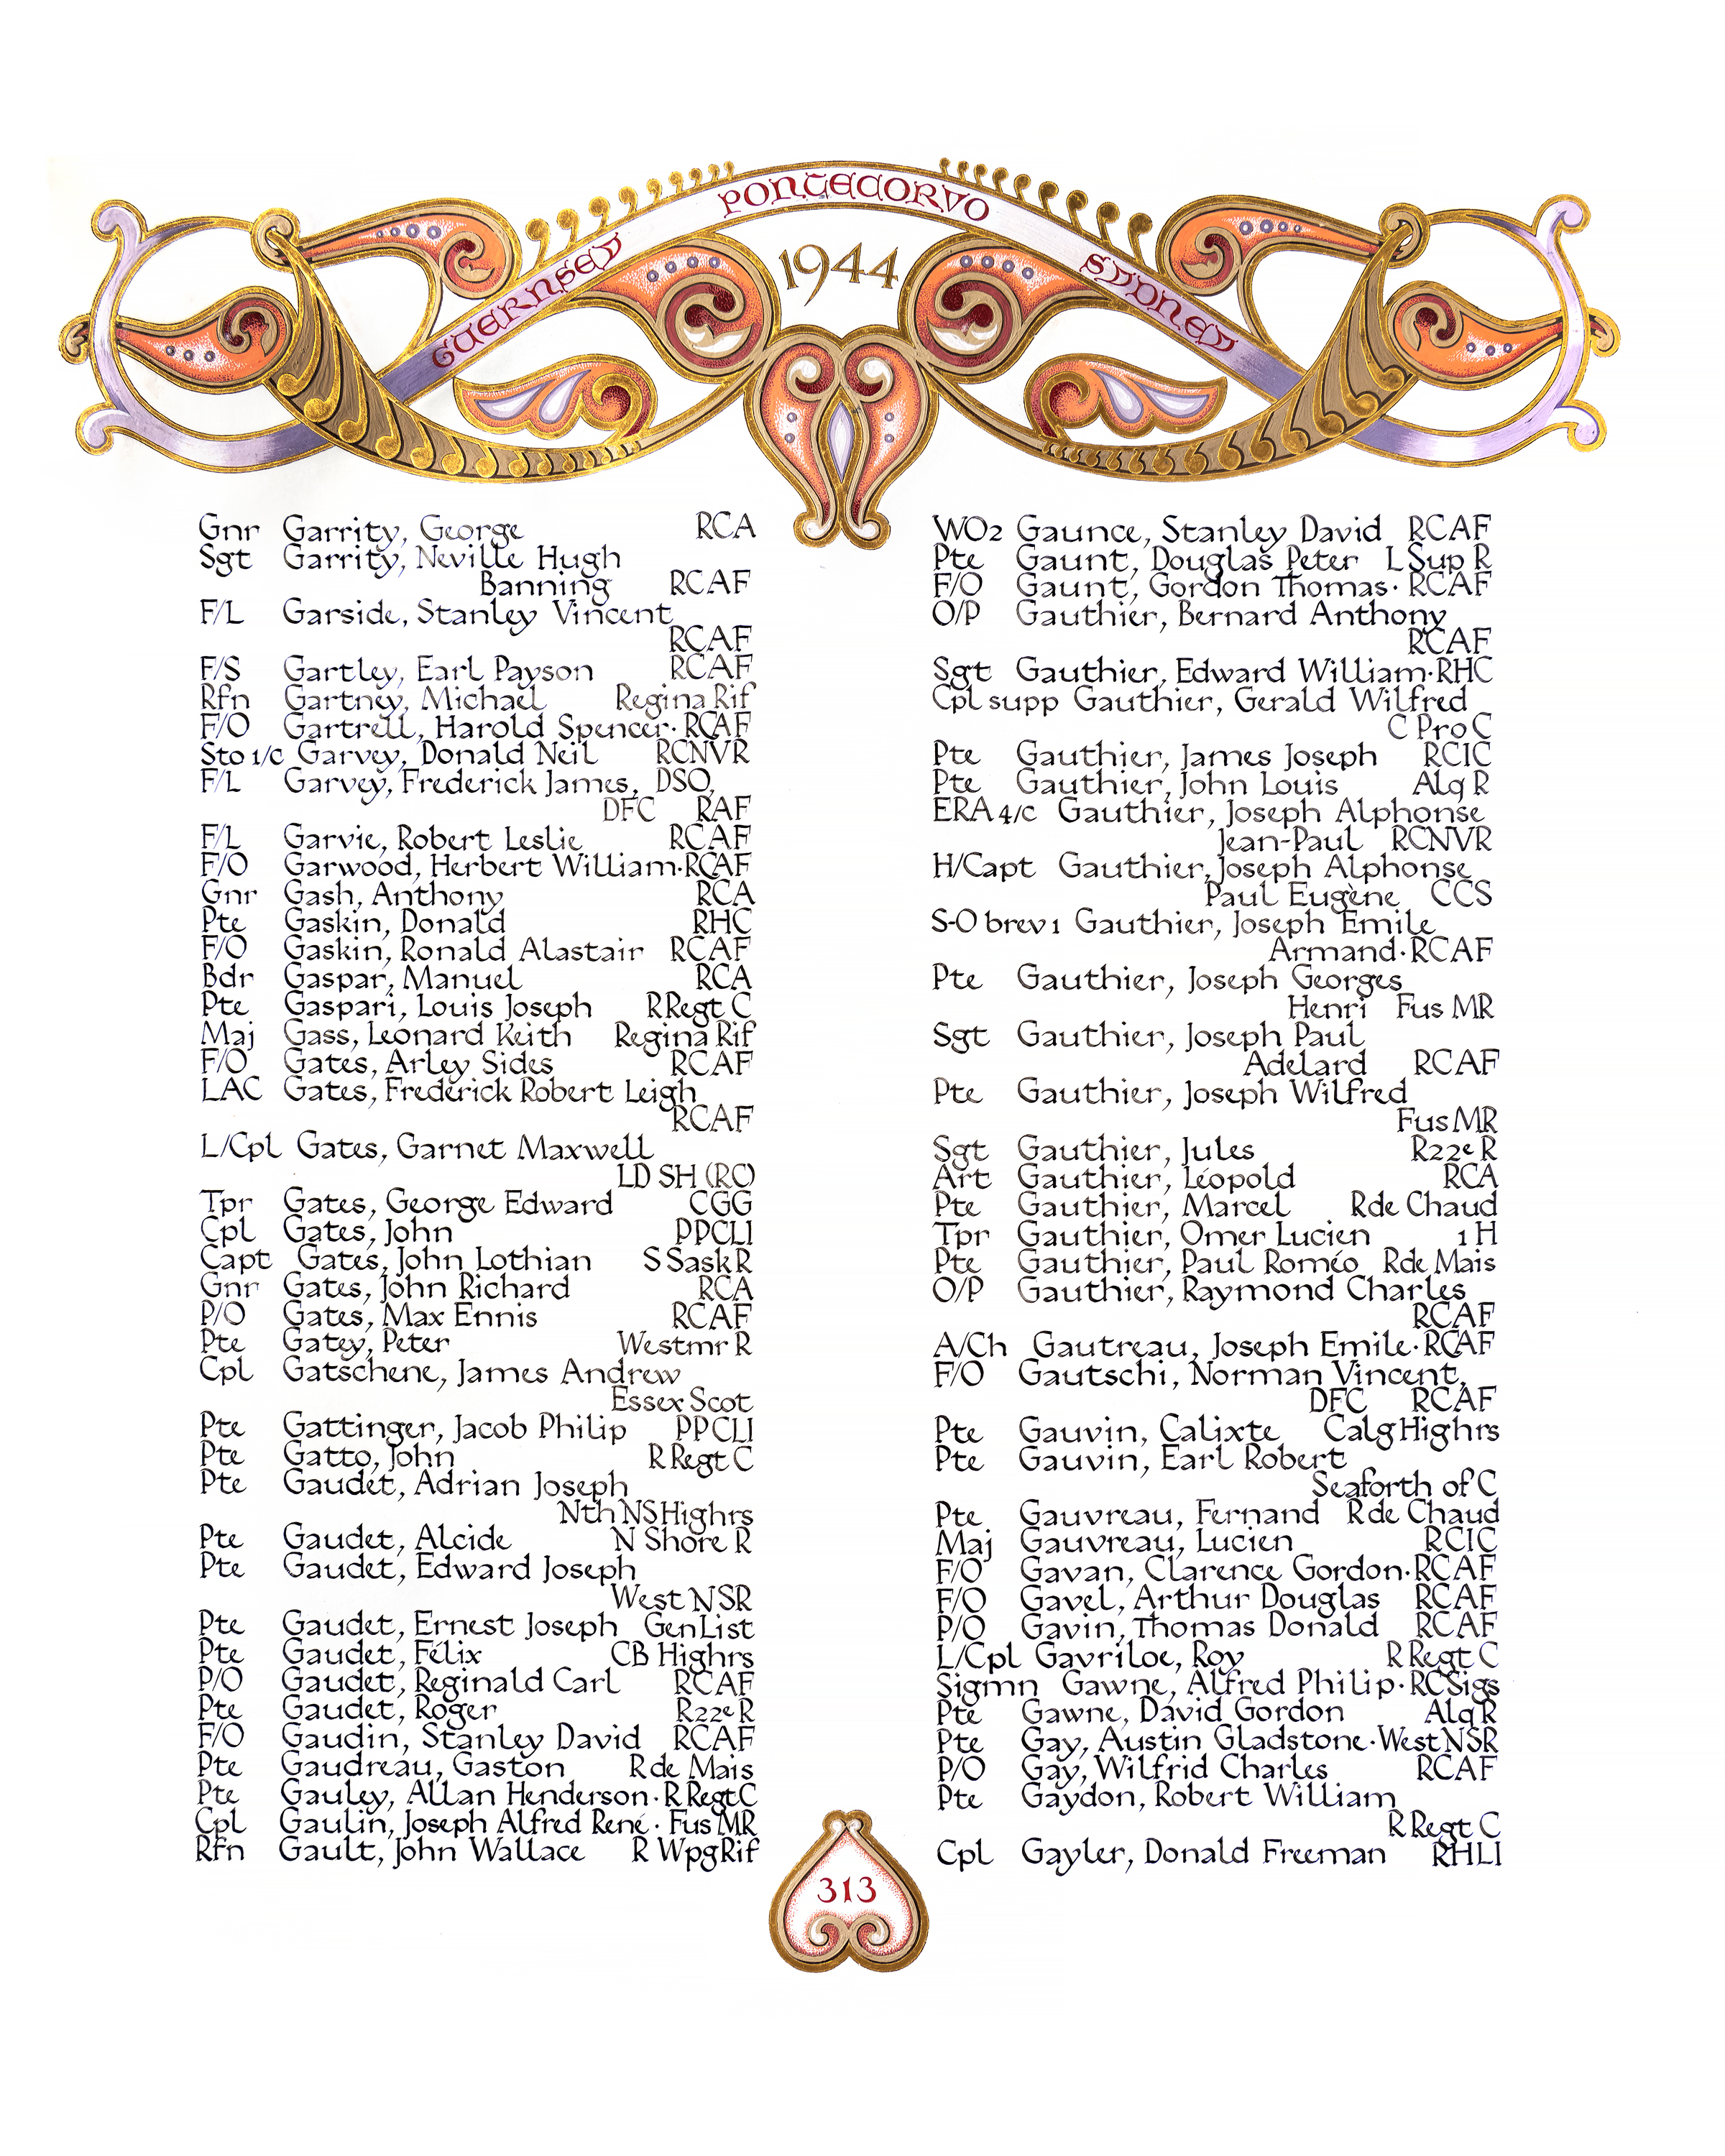 GUERNSEY
PONTECORVO
SYDNEY
1944
Gnr Garrity, George RCA
Sgt Garrity, Neville Hugh
Banning RCAF
F/L Garside, Stanley Vincent
RCAF
F/S Gartley, Earl Payson RCAF
Rfn Gartney, Michael Regina Rif
F/O Gartrell, Harold Spencer · RCAF
Sto 1/c Garvey, Donald Neil RCNVR
F/L Garvey, Frederick James, DSO,
DFC RAF
F/L Garvie, Robert Leslie RCAF
F/O Garwood, Herbert William · RCAF
Gnr Gash, Anthony RCA
Pte Gaskin, Donald RHC
F/O Gaskin, Ronald Alastair RCAF
Bdr Gaspar, Manuel RCA
Pte Gaspari, Louis Joseph R Regt C
Maj Gass, Leonard Keith Regina Rif
F/O Gates, Arley Sides RCAF
LAC Gates, Frederick Robert Leigh
RCAF
L/Cpl Gates, Garnet Maxwell
LD SH (RC)
Tpr Gates, George Edward CGG
Cpl Gates, John PPCLI
Capt Gates, John Lothian S Sask R
Gnr Gates, John Richard RCA
P/O Gates, Max Ennis RCAF
Pte Gatey, Peter Westmr R
Cpl Gatschene, James Andrew
Essex Scot
Pte Gattinger, Jacob Philip PPCLI
Pte Gatto, John R Regt C
Pte Gaudet, Adrian Joseph
Nth NS Highrs
Pte Gaudet, Alcide N Shore R
Pte Gaudet, Edward Joseph
West NSR
Pte Gaudet, Ernest Joseph Gen List
Pte Gaudet, Félix CB Highrs
P/O Gaudet, Reginald Carl RCAF
Pte Gaudet, Roger R22e R
F/O Gaudin, Stanley David RCAF
Pte Gaudreau, Gaston R de Mais
Pte Gauley, Allan Henderson · R Regt C
Cpl Gaulin, Joseph Alfred René · Fus MR
Rfn Gault, John Wallace R Wpg Rif
WO2 Gaunce, Stanley David RCAF
Pte Gaunt, Douglas Peter L Sup R
F/O Gaunt, Gordon Thomas · RCAF
O/P Gauthier, Bernard Anthony
RCAF
Sgt Gauthier, Edward William · RHC
Cpl supp Gauthier, Gerald Wilfred
C Pro C
Pte Gauthier, James Joseph RCIC
Pte Gauthier, John Louis Alq R
ERA 4/c Gauthier, Joseph Alphonse
Jean-Paul RCNVR
H/Capt Gauthier, Joseph Alphonse
Paul Eugène CCS
S-O brev 1 Gauthier, Joseph Emile
Armand · RCAF
Pte Gauthier, Joseph Georges
Henri Fus MR
Sgt Gauthier, Joseph Paul
Adelard RCAF
Pte Gauthier, Joseph Wilfred
Fus MR
Sgt Gauthier, Jules R22e R
Art Gauthier, Léopold RCA
Pte Gauthier, Marcel R de Chaud
Tpr Gauthier, Omer Lucien 1 H
Pte Gauthier, Paul Roméo R de Mais
O/P Gauthier, Raymond Charles
RCAF
A/Ch Gautreau, Joseph Emile · RCAF
F/O Gautschi, Norman Vincent,
DFC RCAF
Pte Gauvin, Calixte Calg Highrs
Pte Gauvin, Earl Robert
Seaforth of C
Pte Gauvreau, Fernand R de Chaud
Maj Gauvreau, Lucien RCIC
F/O Gavan, Clarence Gordon · RCAF
F/O Gavel, Arthur Douglas RCAF
P/O Gavin, Thomas Donald RCAF
L/Cpl Gavriloe, Roy R Regt C
Sigmn Gawne, Alfred Philip · RC Sigs
Pte Gawne, David Gordon Alq R
Pte Gay, Austin Gladstone · West NSR
P/O Gay, Wilfrid Charles RCAF
Pte Gaydon, Robert William
R Regt C
Cpl Gayler, Donald Freeman RHLI
313